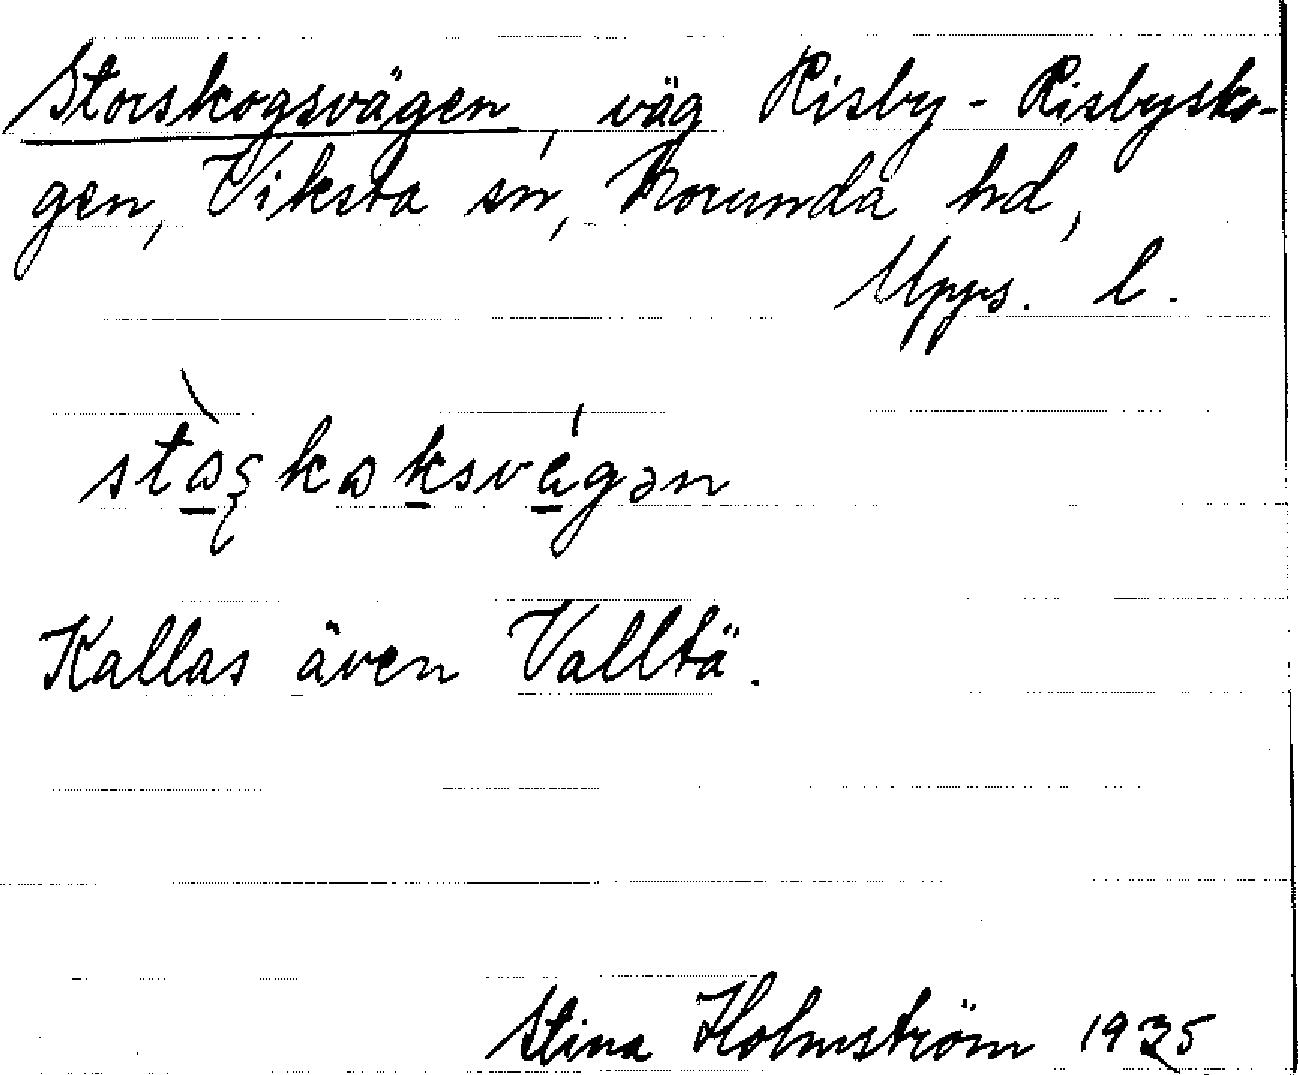 Storskogsvägen, väg Risby - Risbysko-
gen, Viksta sn, Norunda hd,
Upps. l.
Kallas även Valltä.
Stina Holmström 1935